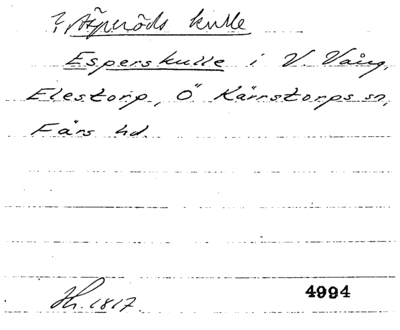 ? Äsperöds kulle
Esperskulle i V. Vång,
Elestorp, Ö Kärrstorps sn,
Färs hd.
1817.
4994